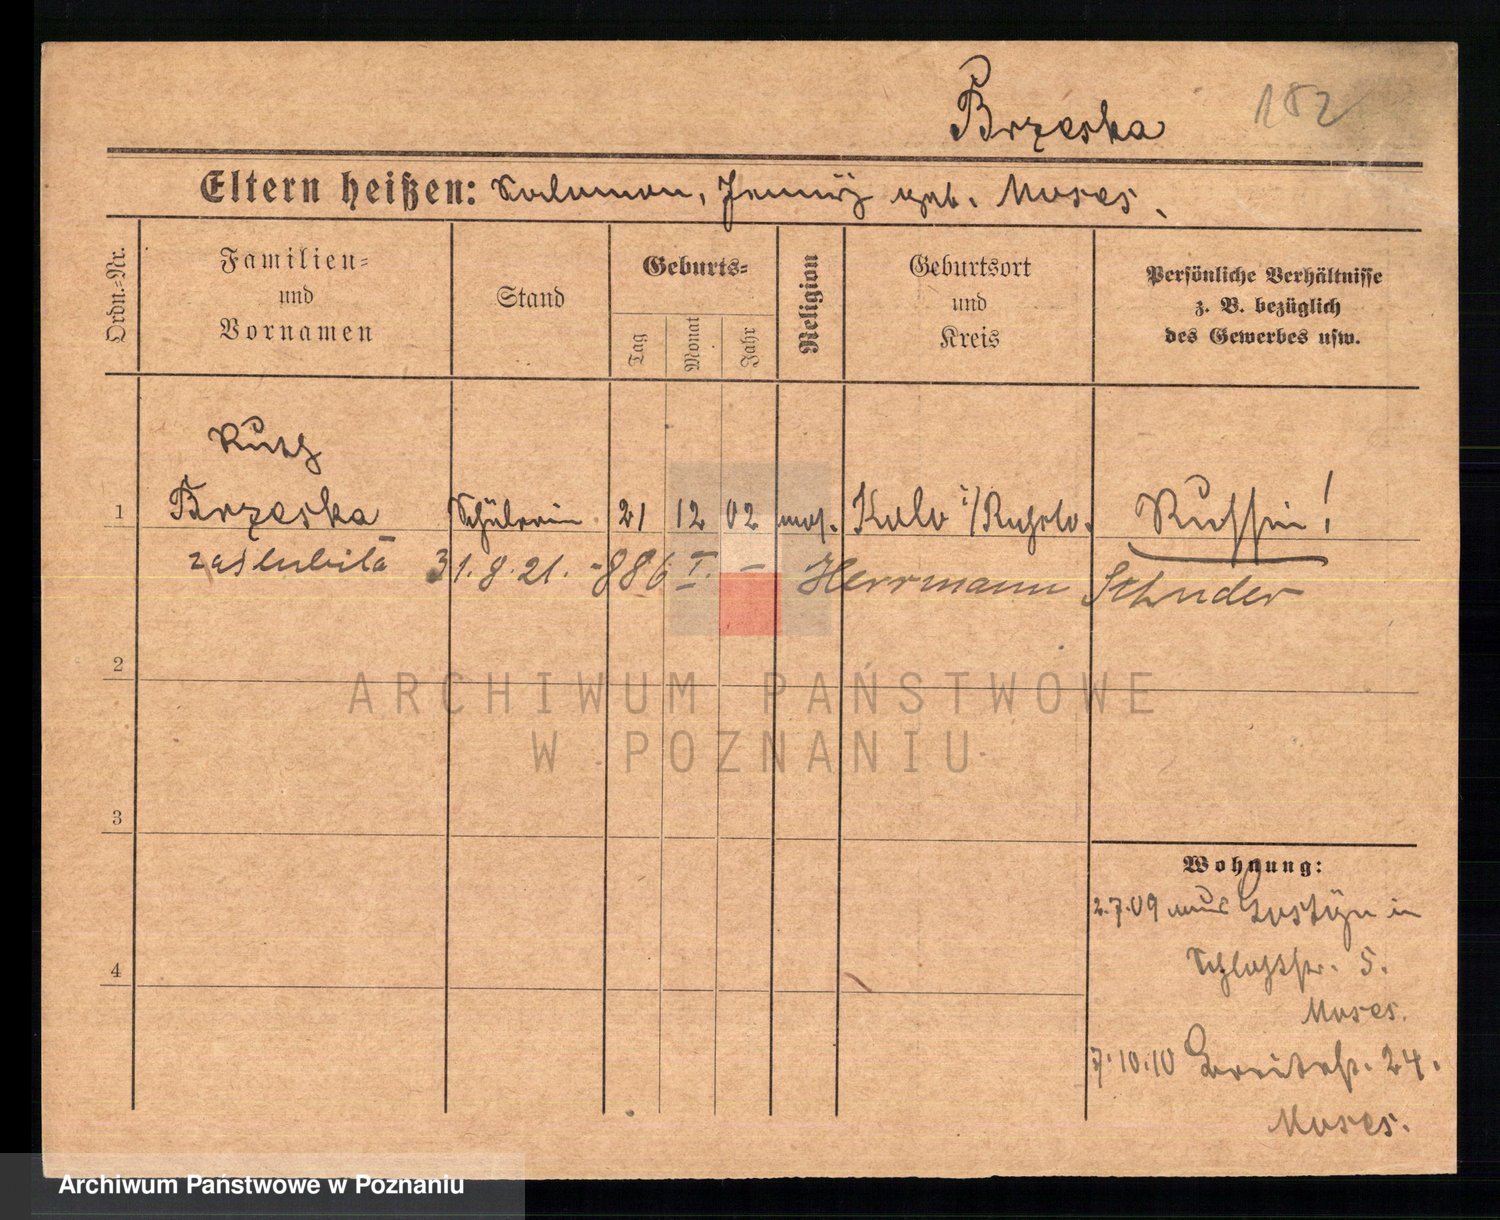 Brzeska 182
Eltern heißen: Salomon, Jenny geb. Moses.
Ordn.-Nr.
Familien-
und
Vornamen
Stand
Geburts-
Tag
Monat
Jahr
Religion
Geburtsort
und
Kreis
Persönliche Verhältnisse
z. B. bezüglich
des Gewerbes usw.
Ruth
1 Brzeska Schülerin 21 12 02 mos. Kolo i/Rußld. Russin!
zaślubiła 31.8.21. -886 I. - Herrmann
2
ARCHIWUM PAŃSTWOWE
W POZNANIU
3
Wohnung:
2.7.09 aus Gostyn in
Schloßstr. 5.
Moses.
4
7.10.10 Breitestr. 24.
Moses.
Archiwum Państwowe w Poznaniu